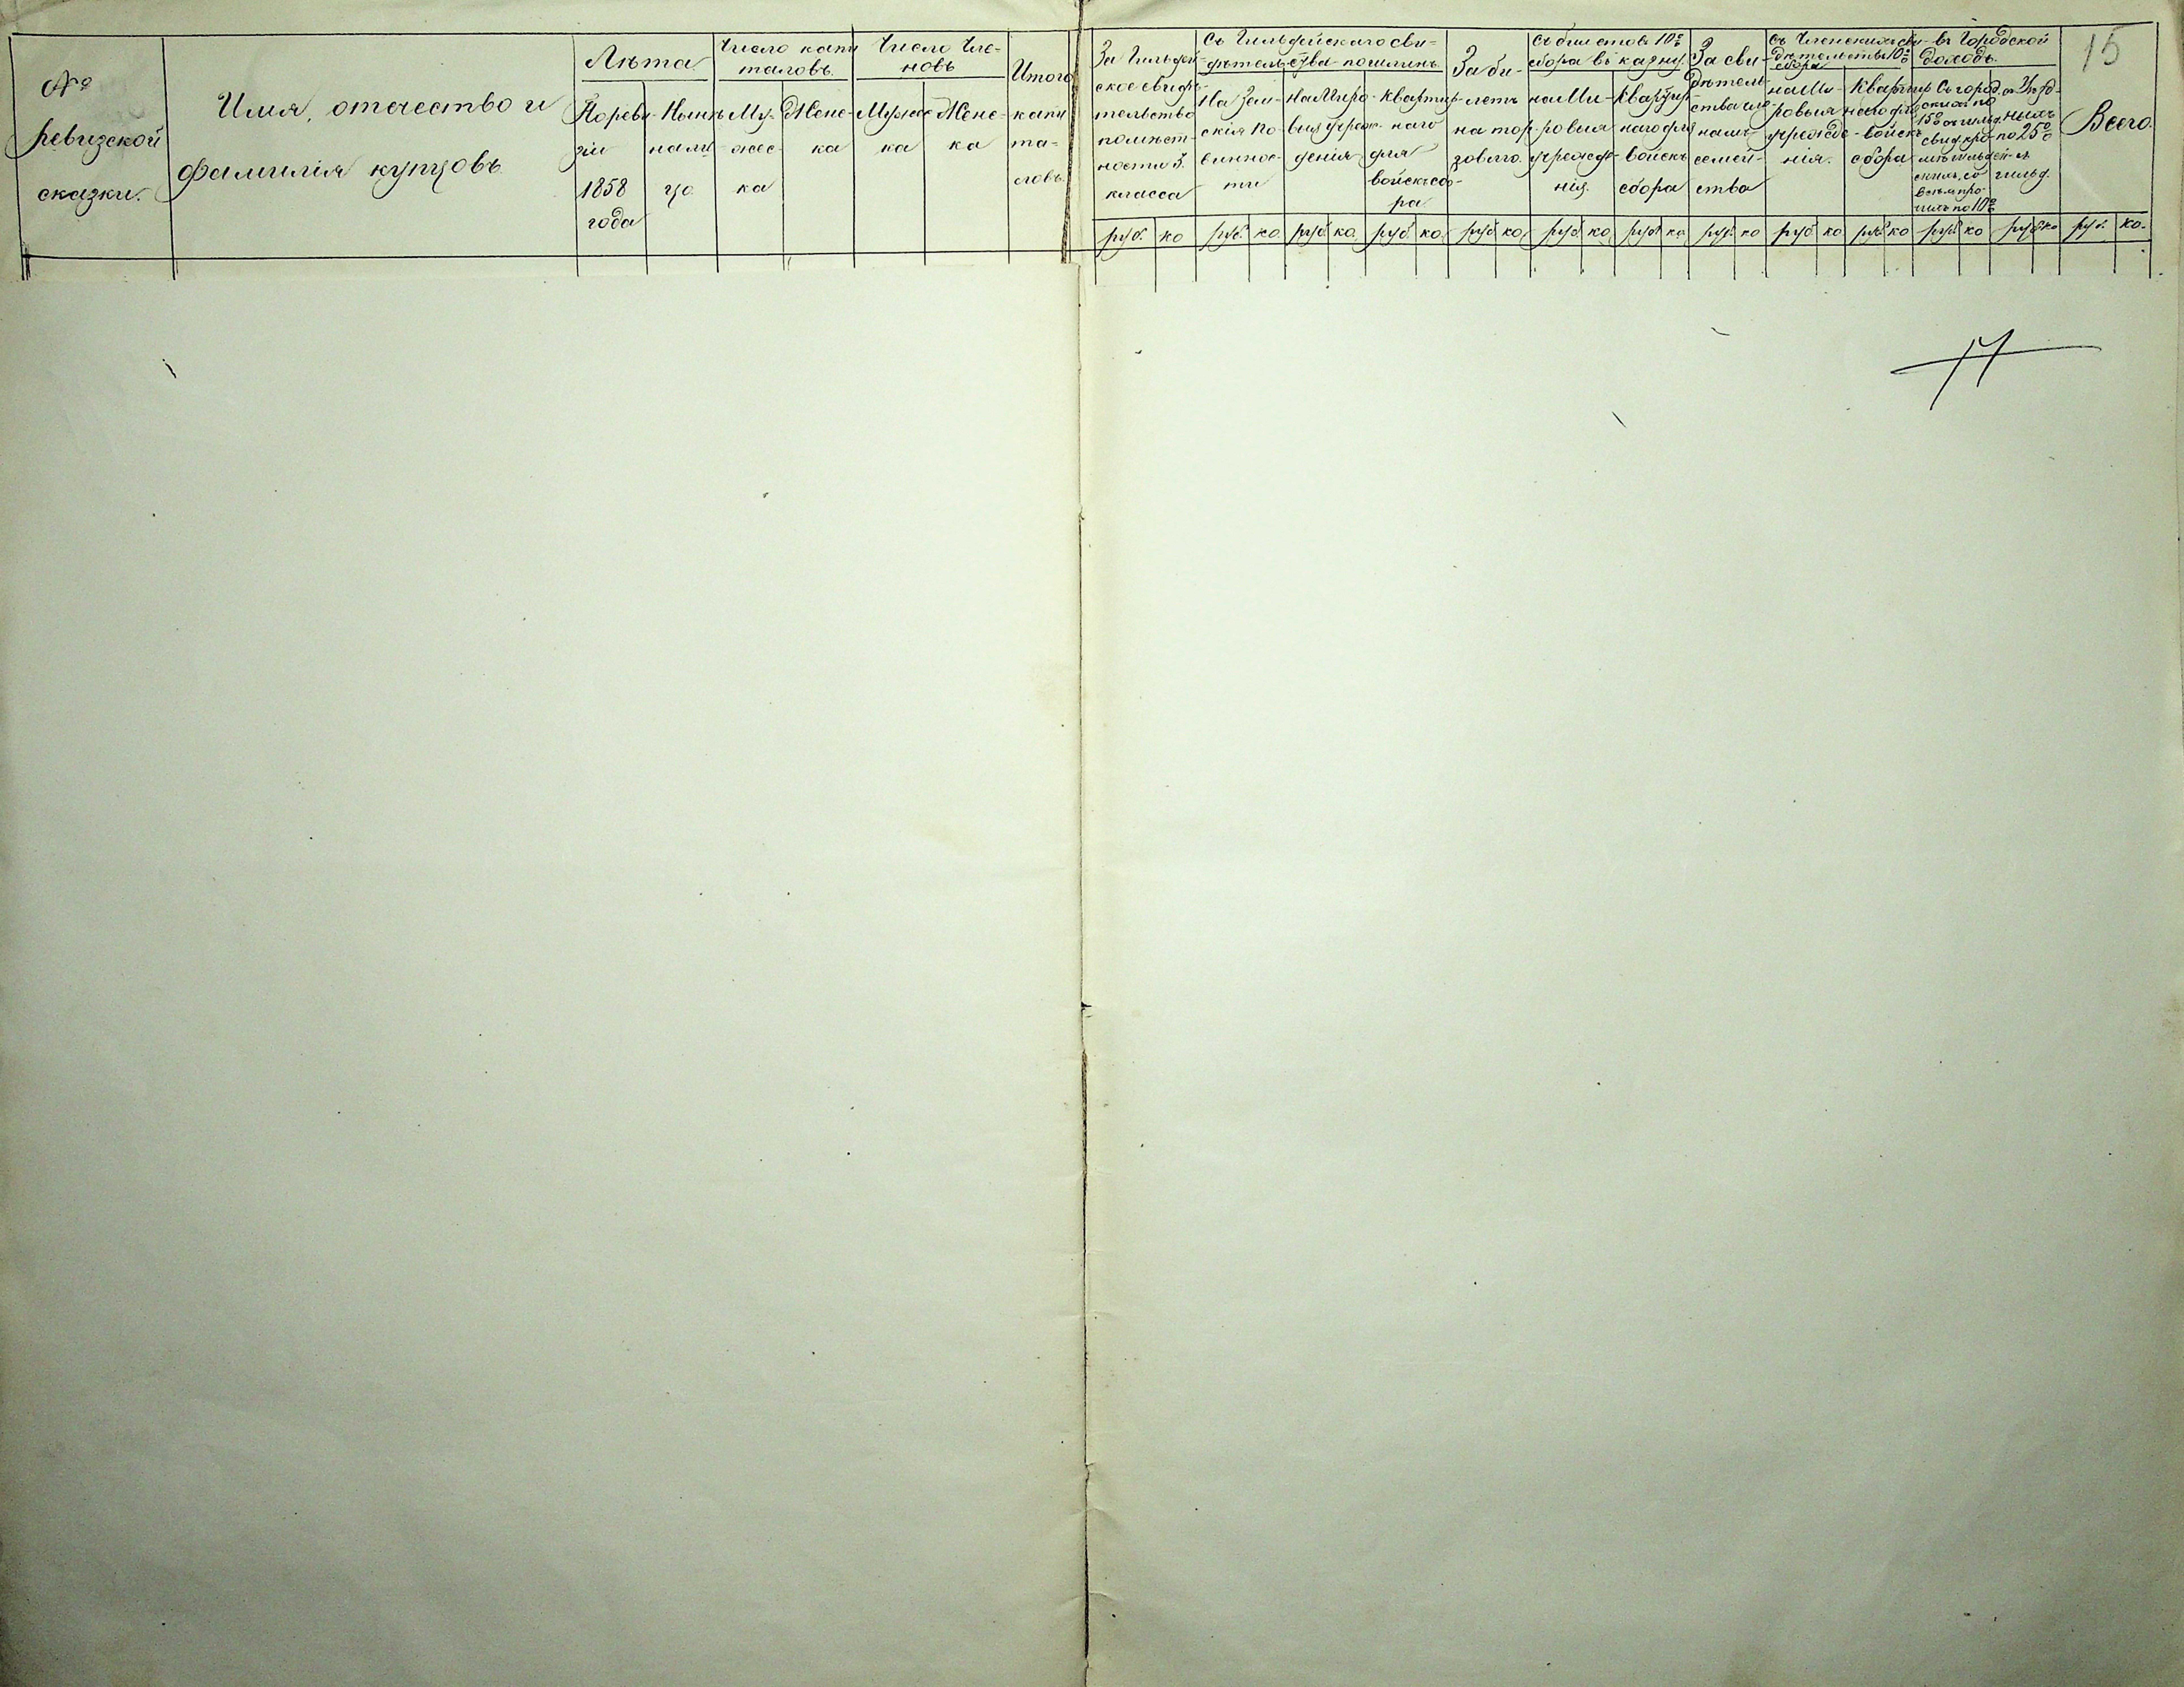 №
ревизской
сказки.
Имя, отчество и
фамилія купцовъ
Лѣта
По реви-
зіи
1858
года
Нынѣ
на ли
цо
Число капи
таловъ.
Му-
жес-
ка
Жене-
ка
Число Чле-
новъ
Мужес
ка
Жене-
ка
Итого
капи
та-
ловъ.
За Гильдей
ское свидѣ-
тельство
по мѣст-
ности 3.
класса
Съ Гильдейскаго сви-
дѣтельства пошлинъ.
На Зем-
скія по-
виннос-
ти
На Миро-
выя учреж-
денія
Квартир-
наго
для
войскъ сбо-
ра
За би-
летъ
на тор-
говлю.
Съ билетовъ 10%
сбора въ казну.
на Ми-
ровыя
учрежде-
нія.
Квартир-
наго для
войскъ
сбора
За сви-
дѣтель-
ства
семей-
ства
Съ Членскихъ сви-
дѣтельствъ 10%
сбора
на Ми-
ровыя
учрежде-
нія.
Квартир
наго для
войскъ
сбора
въ Городской
доходъ.
Съ город.
по 25%
гильд.
Всего.
15
руб. ко руб. ко руб ко руб. ко руб ко руб ко руб ко руб. ко руб ко руб ко руб ко руб ко руб. ко.